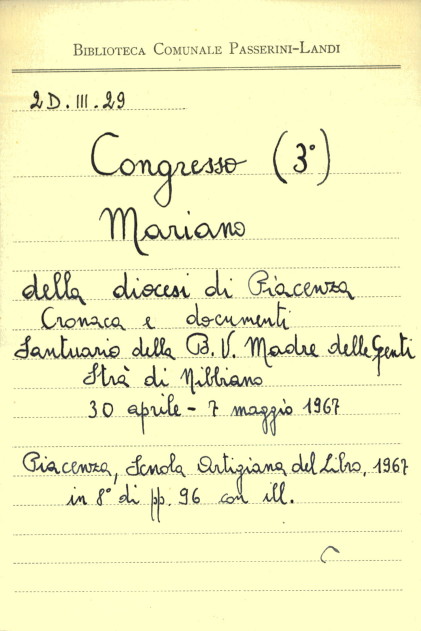 BIBLIOTECA COMUNALE PASSERINI-LANDI
2D.III.29
Congresso (3°)
Mariano
della diocesi di Piacenza
Cronaca e documenti
Santuario della B.V. Madre delle Genti
Strà di Nibbiano
30 aprile - 7 maggio 1967
Piacenza, Scuola Artigiana del Libro, 1967
in 8° di pp. 96 con ill.